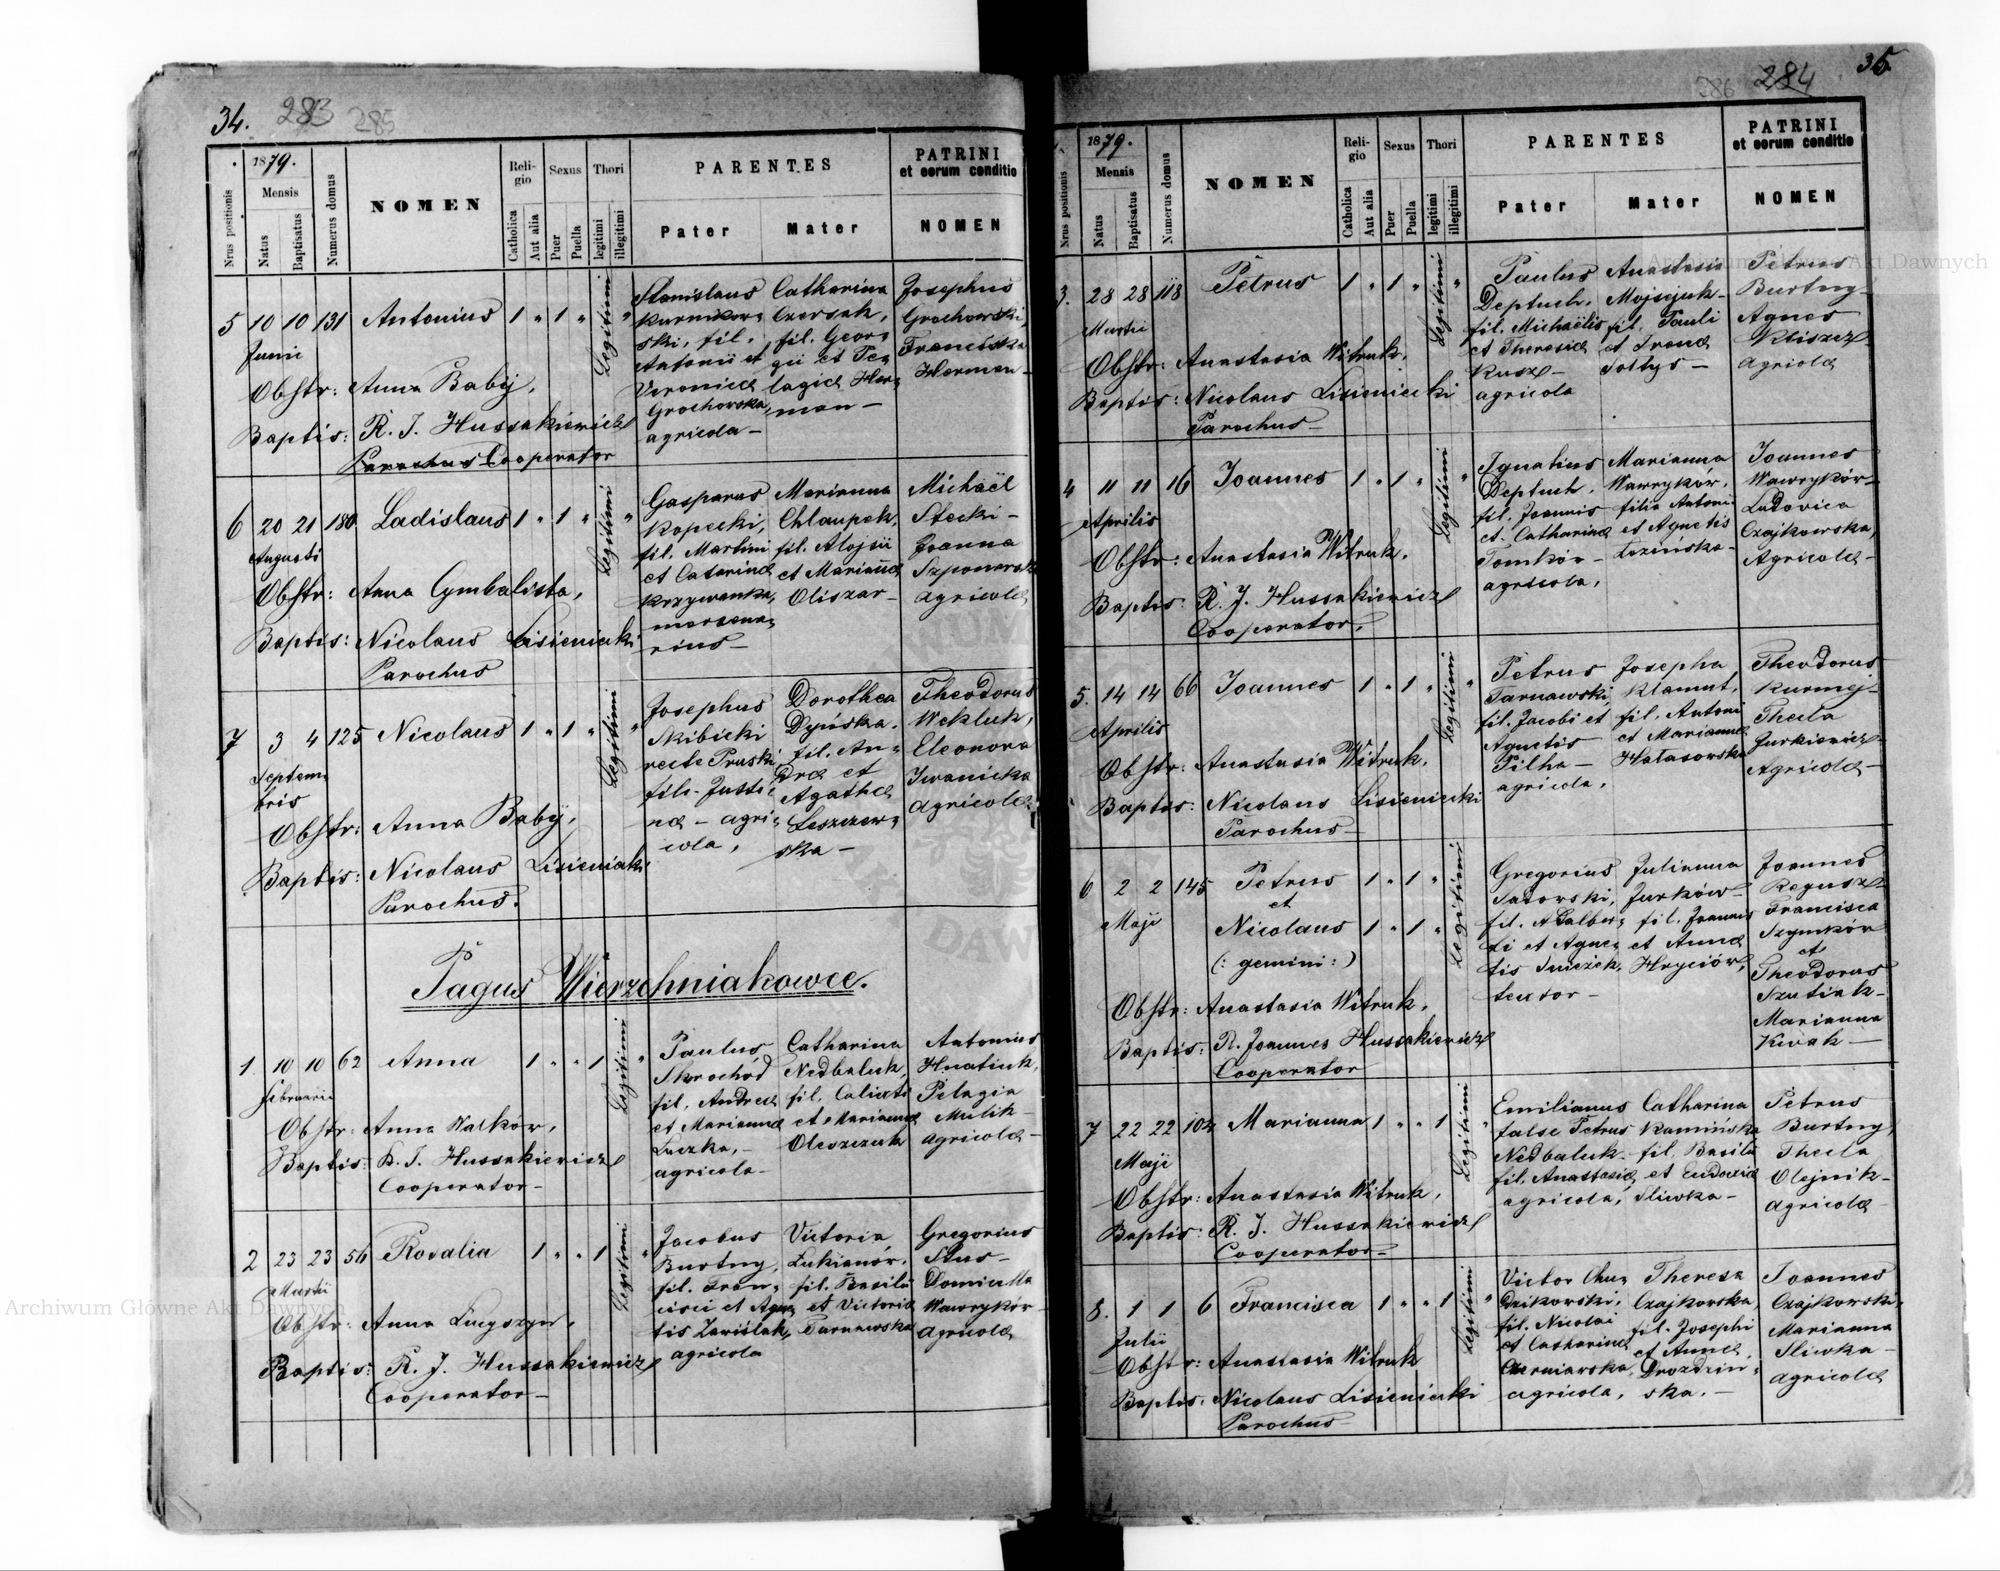 34. 283 285
1879.
Nrus positionis
Mensis
Natus
Baptisatus
Numerus domus
NOMEN
Religio
Catholica
Aut alia
Sexus
Puer
Puella
Thori
legitimi
illegitimi
PARENTES
Pater
Mater
PATRINI
et eorum conditio
NOMEN
5 10 10 131 Antonius 1 " 1 " Legitimi "
Junii
Obstr: Anna Baby,
Baptis: R. J. Hussakiewicz
Parochus Cooperator
Stanislaus
Kurnikow=
ski, fil.
Antonii et
Veronicæ
Grochowska,
agricola –
Catharina
Czersak,
fil. Geor=
gii et Pe=
lagiæ Her=
man –
Josephus
Grochowski,
Franciska
Herman –
6 20 21 180 Ladislaus 1 " 1 " Legitimi "
Augusti
Obstr: Anna Cymbalista,
Baptis: Nicolaus Lisieniecki
Parochus
Gasparus
Kopecki,
fil. Martini
et Catarinæ
Krzywanka,
mercena=
rius –
Marianna
Chlaupek,
fil. Alojsii
et Mariannæ
Oliszar –
Michaël
Stecki –
Joanna
agricolæ
7 3 4 125 Nicolaus 1 " 1 " Legitimi "
Septem=
bris
Obstr: Anna Baby,
Baptis: Nicolaus Lisieniecki
Parochus.
Josephus
Skibicki
recte Pruski,
fil. Justi=
næ – agri=
cola,
Dorothea
Dyńska,
fil. An=
dræ et
Agathæ
Leszczew=
ska –
Theodorus
Wekluk,
Eleonora
Iwanicka
agricolæ
Pagus Wierzchniakowce.
1. 10 10 62 Anna 1 " " 1 Legitimi "
februarii
Obstr: Anna Walków,
Baptis: R. J. Hussakiewicz
Cooperator –
Paulus
Skorochód
fil. Andreæ
et Mariannæ
Luczka, –
agricola –
Catharina
Nedbaluk,
fil. Calixti
et Mariannæ
Oleszczuk
Antonius
Hnatiuk,
Pelagia
Mulik –
agricolæ –
2 23 23 56 Rosalia 1 " " 1 Legitimi "
Martii
Obstr: Anna
Baptis: R. J. Hussakiewicz
Cooperator –
Jacobus
Burtny,
fil. Fran=
cisci et Agne=
tis Zawiślak,
agricola
Victoria
Lukianów,
fil. Basilii
et Victoriæ
Tarnawska
Gregorius
Stus –
Domicella
Wawryków –
agricolæ
35 284 286
1879.
Nrus positionis
Mensis
Natus
Baptisatus
Numerus domus
NOMEN
Religio
Catholica
Aut alia
Sexus
Puer
Puella
Thori
legitimi
illegitimi
PARENTES
Pater
Mater
PATRINI
et eorum conditio
NOMEN
3. 28 28 118 Petrus 1 " 1 " Legitimi "
Martii
Obstr: Anastasia Witruk,
Baptis: Nicolaus Lisieniecki
Parochus –
Paulus
Deptuch,
fil. Michaëlis
et Theresiæ
Kusz –
agricola
Anastasia
Mojsejuk –
fil. Pauli
et Irenæ
Sołtys –
Petrus
Burtny –
Agnes
Kliszcz
agricolæ
4 11 11 16 Joannes 1 " 1 " Legitimi "
Aprilis
Obstr: Anastasia Witruk,
Baptis: R. J. Hussakiewicz
Cooperator,
Ignatius
Deptuch,
fil. Joannis
et Catharinæ
Tomków –
agricola,
Marianna
Wawryków,
filia Antonii
et Agnetis
Łozińska –
Joannes
Wawryków –
Ludovica
Czajkowska,
Agricolæ –
5. 14 14 66 Joannes 1 " 1 " Legitimi "
Aprilis
Obstr: Anastasia Witruk,
Baptis: Nicolaus Lisieniecki
Parochus –
Petrus
Tarnawski,
fil. Jacobi et
Agnetis
Pilha –
agricola,
Josepha
Klamut,
fil. Antoni
et Mariannæ
Hałasowska
Theodorus
Kurmej –
Thecla
Jurkiewicz
Agricolæ –
6 2 2 145 Petrus 1 " 1 " Legitimi
et
Maji
Nicolaus 1 " 1 "
(: gemini :)
Obstr: Anastasia Witruk,
Baptis: R. Joannes Hussakiewicz
Cooperator
Gregorius
Sadorski,
fil. Adalber=
ti et Agne=
tis Smiczek,
textor –
Julianna
Jurków –
fil. Joannis
et Annæ
Hryciów,
Joannes
Regusz –
Francisca
Szymków
et
Theodorus
Szutiak –
Marianna
Kwak –
7 22 22 104 Marianna 1 " " 1 Legitimi "
Maji
Obstr: Anastasia Witruk,
Baptis: R. J. Hussakiewicz
Cooperator –
Emilianus
false Petrus
Nedbaluk –
fil. Anastasiæ
agricola,
Catharina
Kamińska
fil. Basilii
et Eudoxiæ
Sliwka –
Petrus
Burtny,
Thecla
Olejnik –
agricolæ
8. 1 1 6 Francisca 1 " " 1 Legitimi "
Julii
Obstr: Anastasia Witruk
Baptis: Nicolaus Lisieniecki
Parochus –
Victor Chu=
dzikowski,
fil. Nicolai
et Catharinæ
Czerniawska,
agricola,
Theresa
Czajkowska,
fil. Josephi
et Annæ
Drozdzin=
ska. –
Joannes
Czajkowski,
Marianna
Sliwka –
agricolæ
Archiwum Główne Akt Dawnych
Archiwum Główne Akt Dawnych